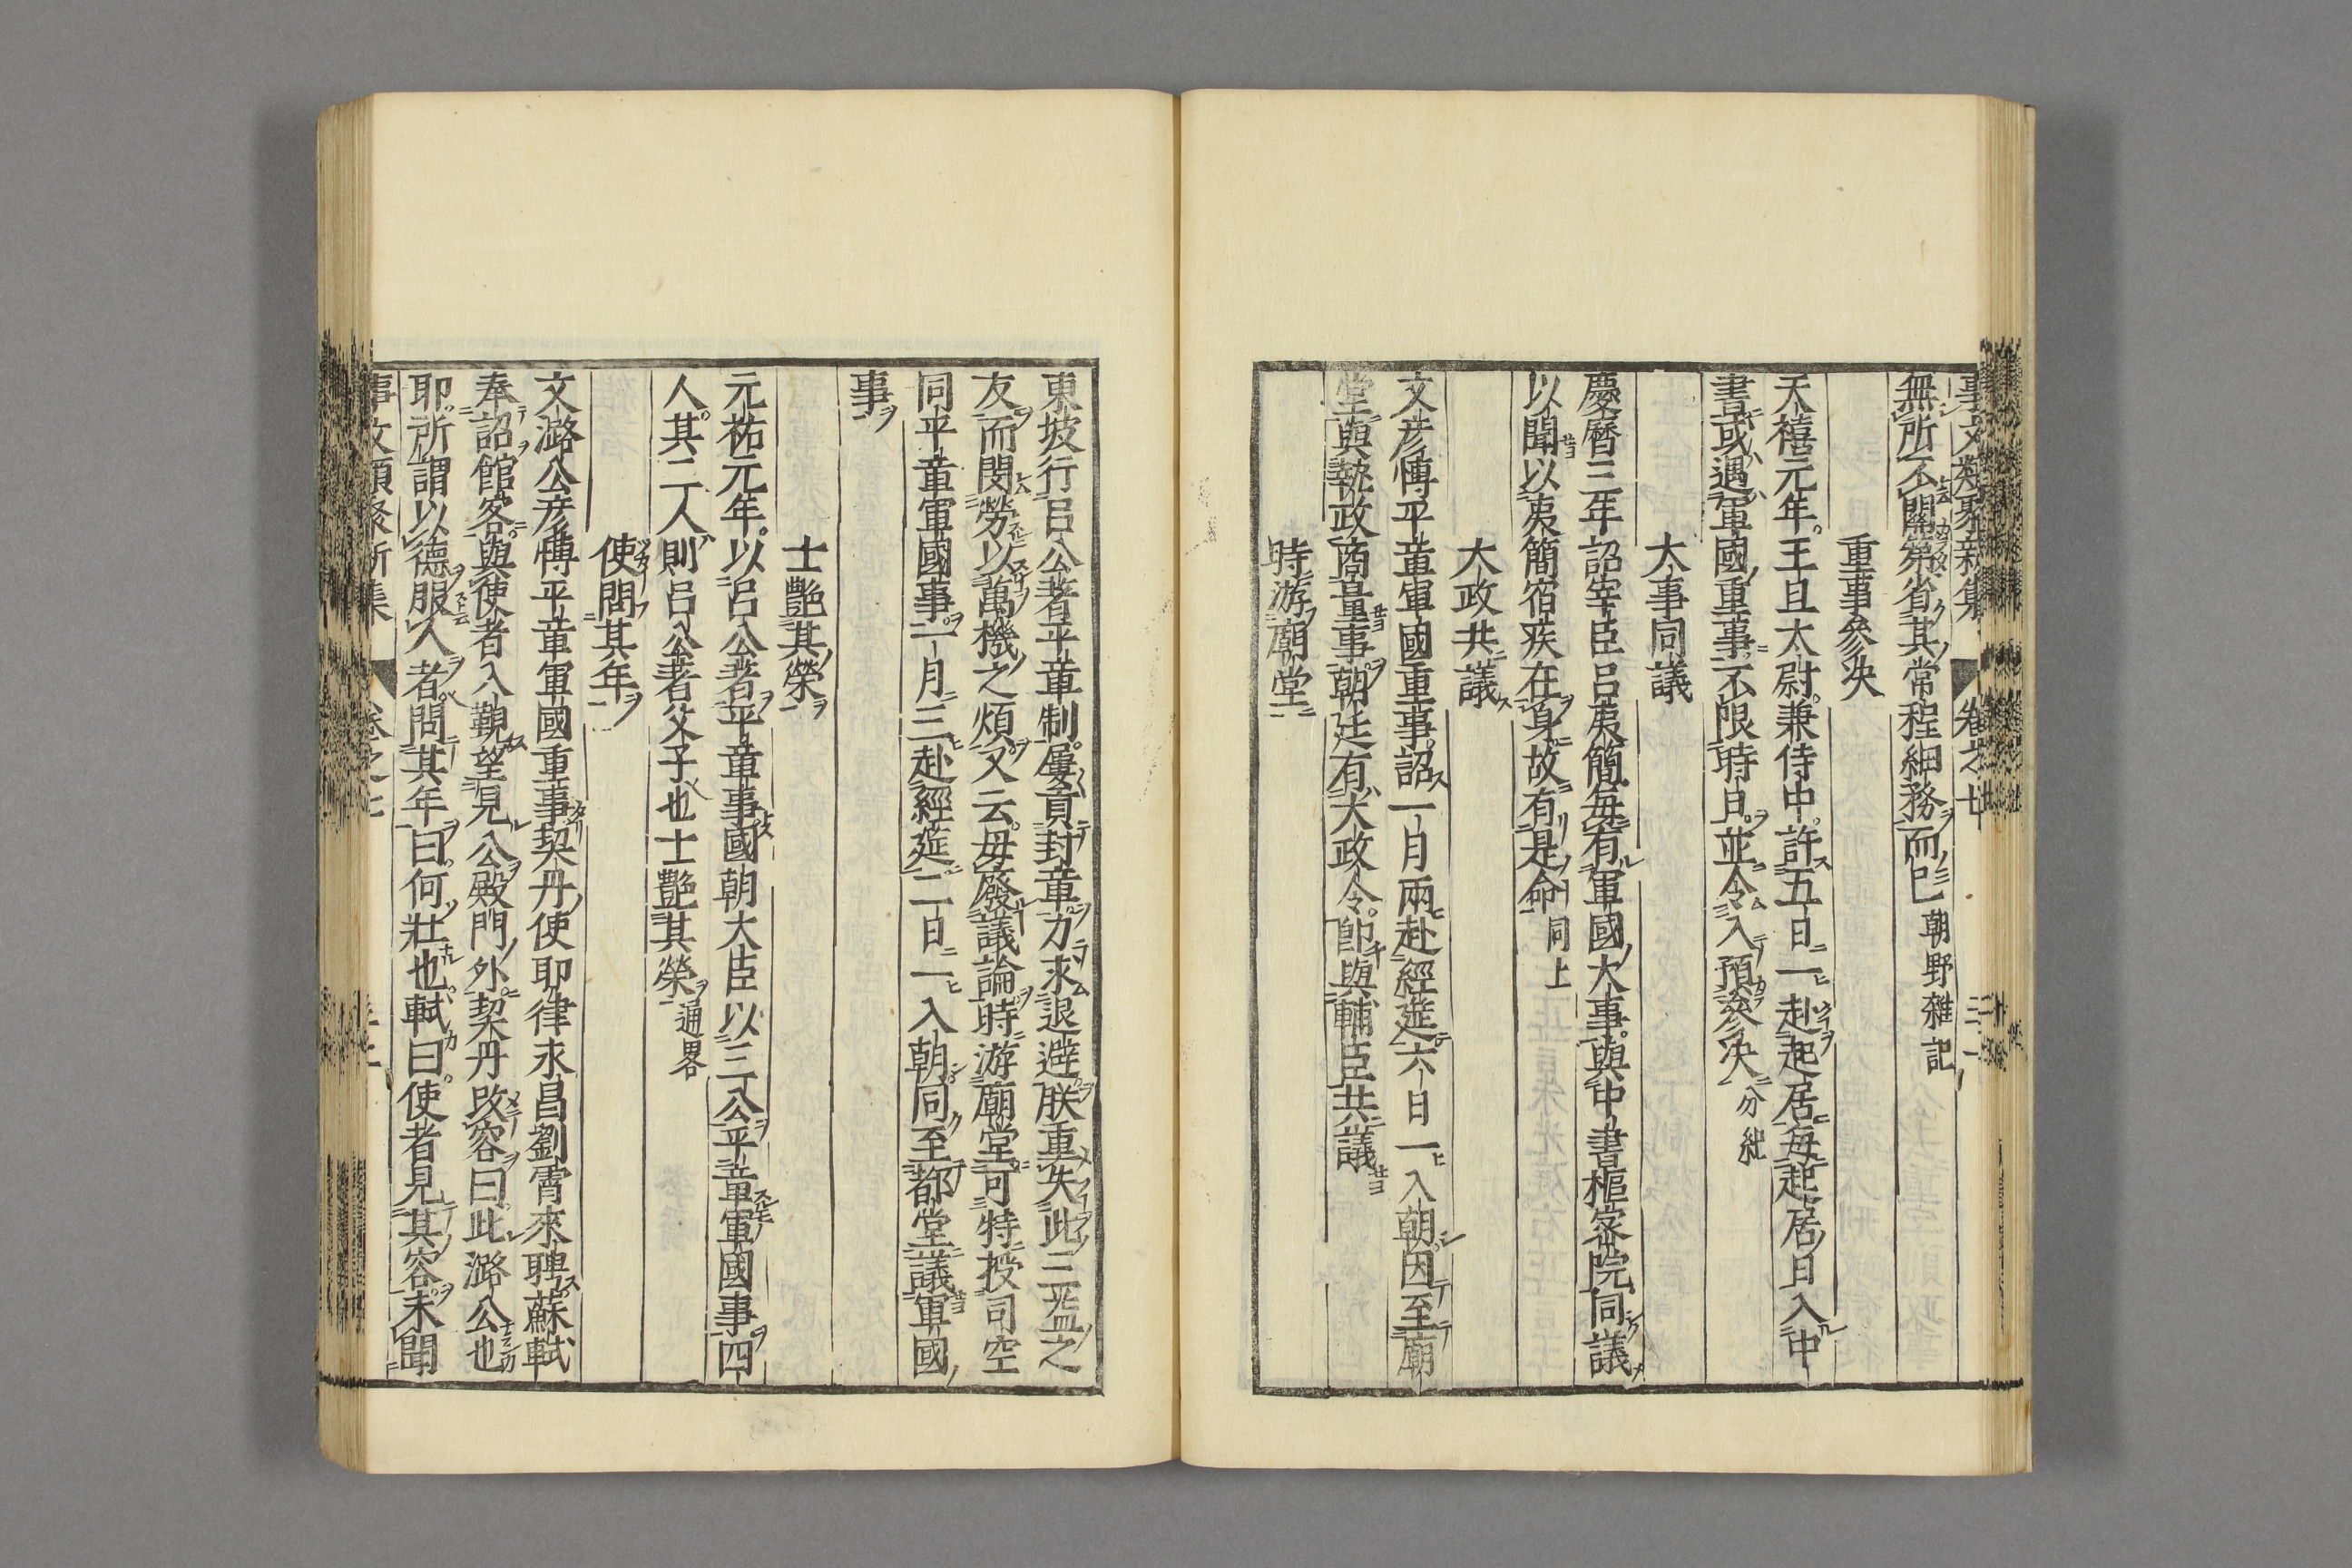 事文類聚新集 卷之七 三十一
無所不關第省其常程細務而已朝野雜記
重事參决
天禧元年王旦太尉兼侍中許五日一赴起居每起居日入中
書或遇軍國重事不限時日並令入預參决分紀
大事同議
慶曆三年詔宰臣呂夷簡每有軍國大事與中書樞密院同議
以聞以夷簡宿疾在身故有是命同上
大政共議
文彦博平章軍國重事詔一月兩赴經筵六日一入朝因至廟
堂與執政商量事朝廷有大政令即與輔臣共議
時游廟堂
東坡行呂公著平章制屢貢封章力求退避朕重失此三益之
友而閔勞以萬機之煩又云毋廢議論時游廟堂可特授司空
同平章軍國事一月三赴經筵二日一入朝同至都堂議軍國
事
士艷其榮
元祐元年以呂公著平章事國朝大臣以三公平章軍國事四
人其二人則呂公著父子也士艷其榮通畧
使問其年
文潞公彦博平章軍國重事契丹使耶律永昌劉霄來聘蘇軾
奉詔館客與使者入覲望見公殿門外契丹改容曰此潞公也
耶所謂以德服人者問其年曰何壯也軾曰使者見其容未聞
事文類聚新集 卷之七